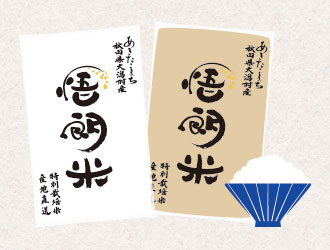 あきたこまち
秋田県大潟村産
悟朗米
特別栽培米
産地直送
あきたこまち
秋田県大潟村産
悟朗米
特別栽培米
産地直送